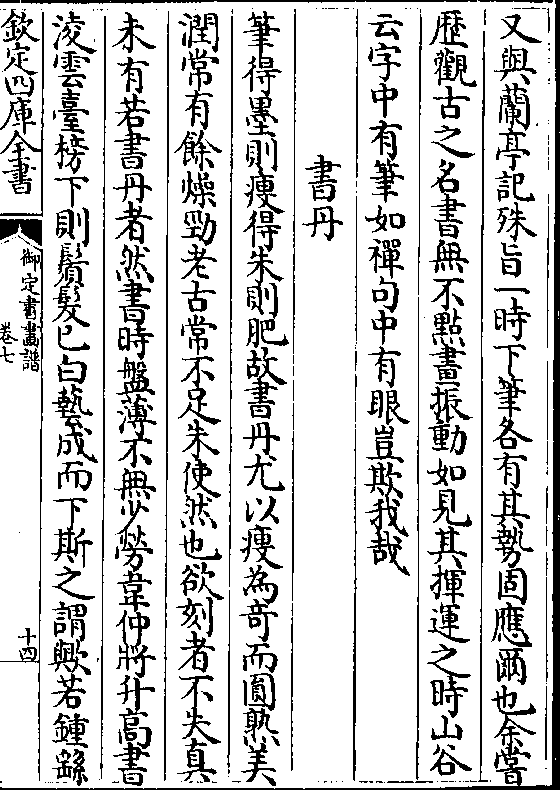 又與蘭亭記殊旨一時下筆各有其勢固應爾也余嘗
歷觀古之名書無不點畫振動如見其揮運之時山谷
云字中有筆如禪句中有眼豈欺我哉
書丹
筆得墨則瘦得朱則肥故書丹尤以瘦為奇而圓熟美
潤常有餘燥勁老古常不足朱使然也欲刻者不失真
未有若書丹者然書時盤薄不無少勞韋仲將升高書
淩雲臺榜下則鬚髮已白藝成而下斯之謂歟若鍾繇
欽定四庫全書
御定書畫譜
卷七
十四